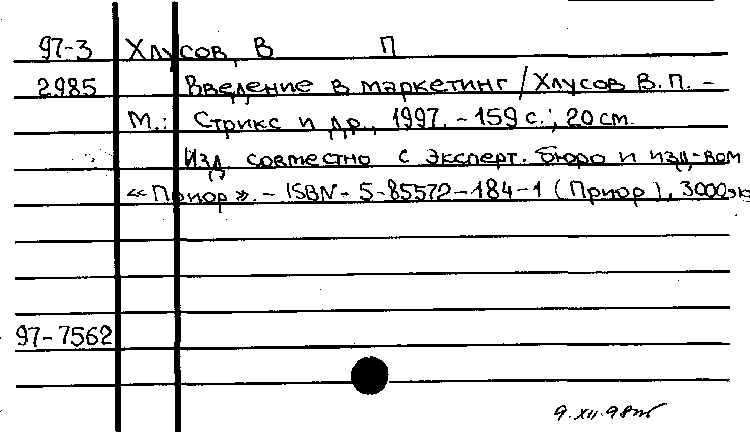 97-3 Хлусов, В П
2985 Введение в маркетинг / Хлусов В.П. –
М.: Стрикс и др., 1997. – 159 с.; 20 см.
Изд. совместно с эксперт. бюро и изд-вом
«Приор». – ISBN - 5-85572-184-1 (Приор), 3000 эк
97-7562
9.XII.98